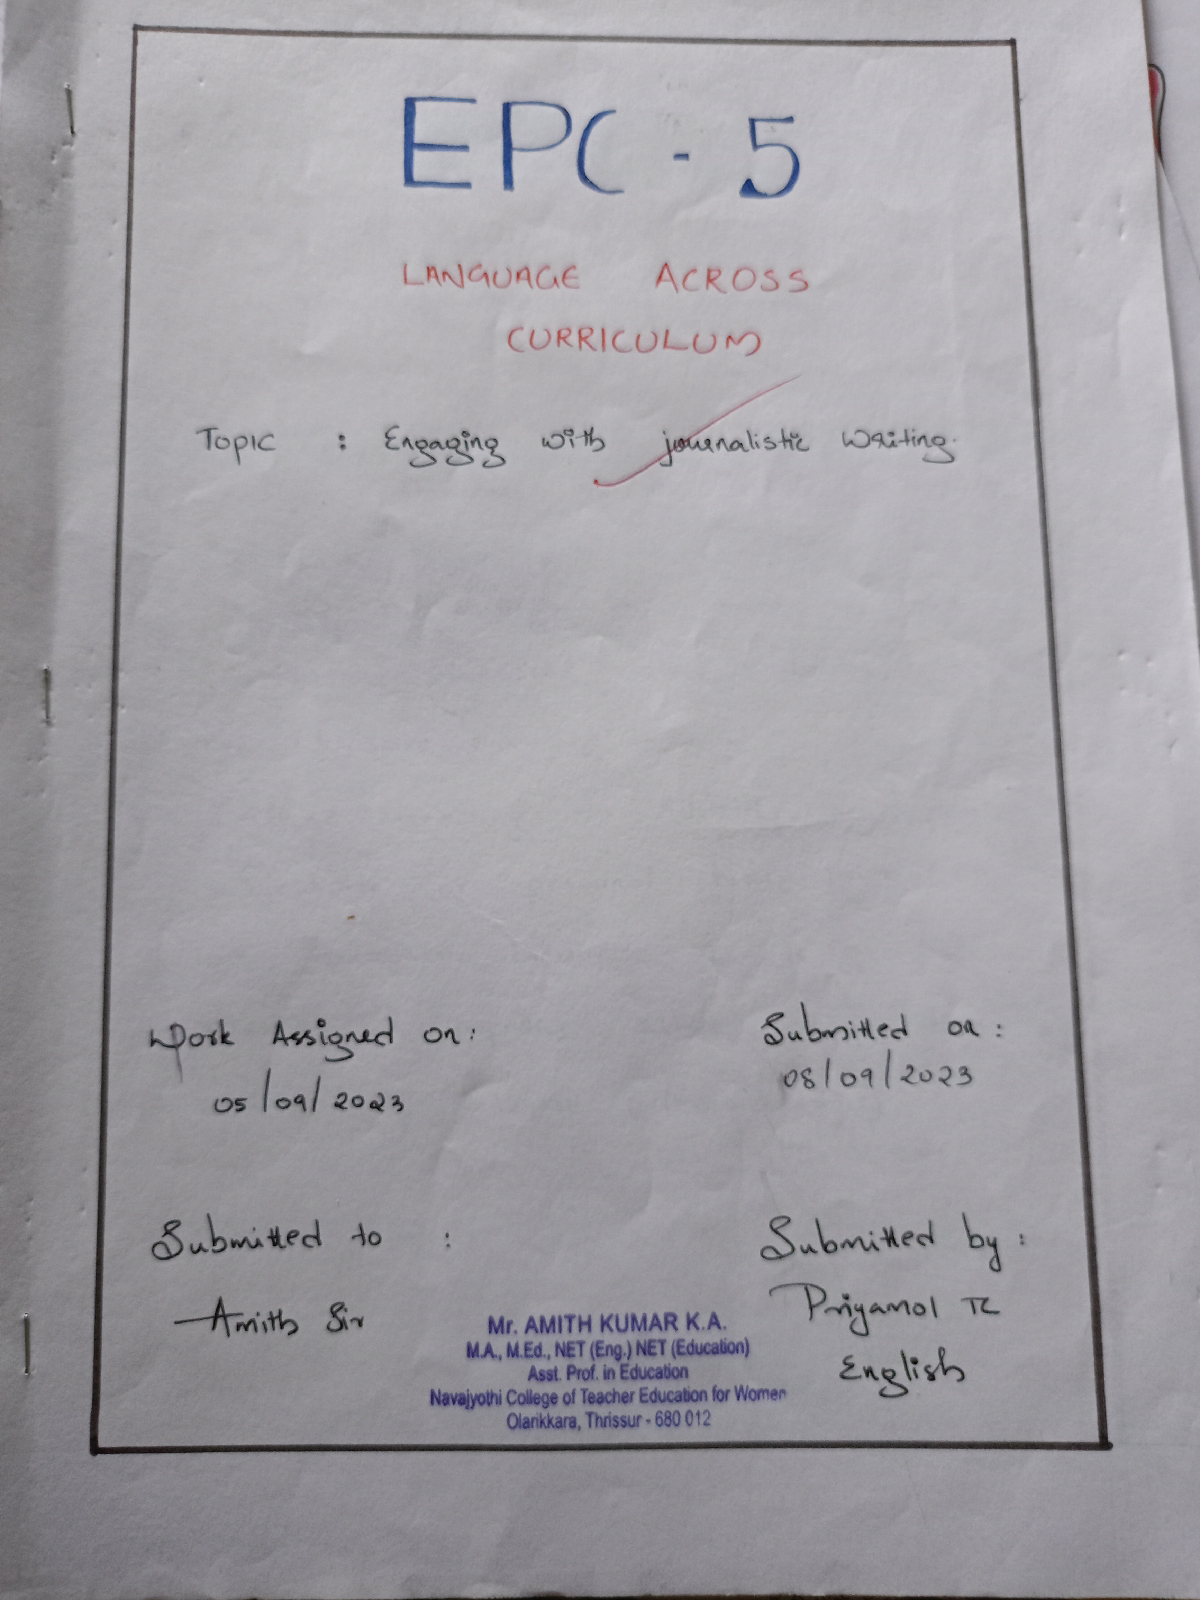 EPC - 5
LANGUAGE ACROSS
CURRICULUM
Topic : Engaging with journalistic Writing.
Work Assigned on :
05/09/2023
Submitted on :
08/09/2023
Submitted to :
Amith Sir
Submitted by :
Priyamol TC
English
Mr. AMITH KUMAR K.A.
M.A., M.Ed., NET (Eng.) NET (Education)
Asst. Prof. in Education
Navajyothi College of Teacher Education for Women
Olarikkara, Thrissur - 680 012